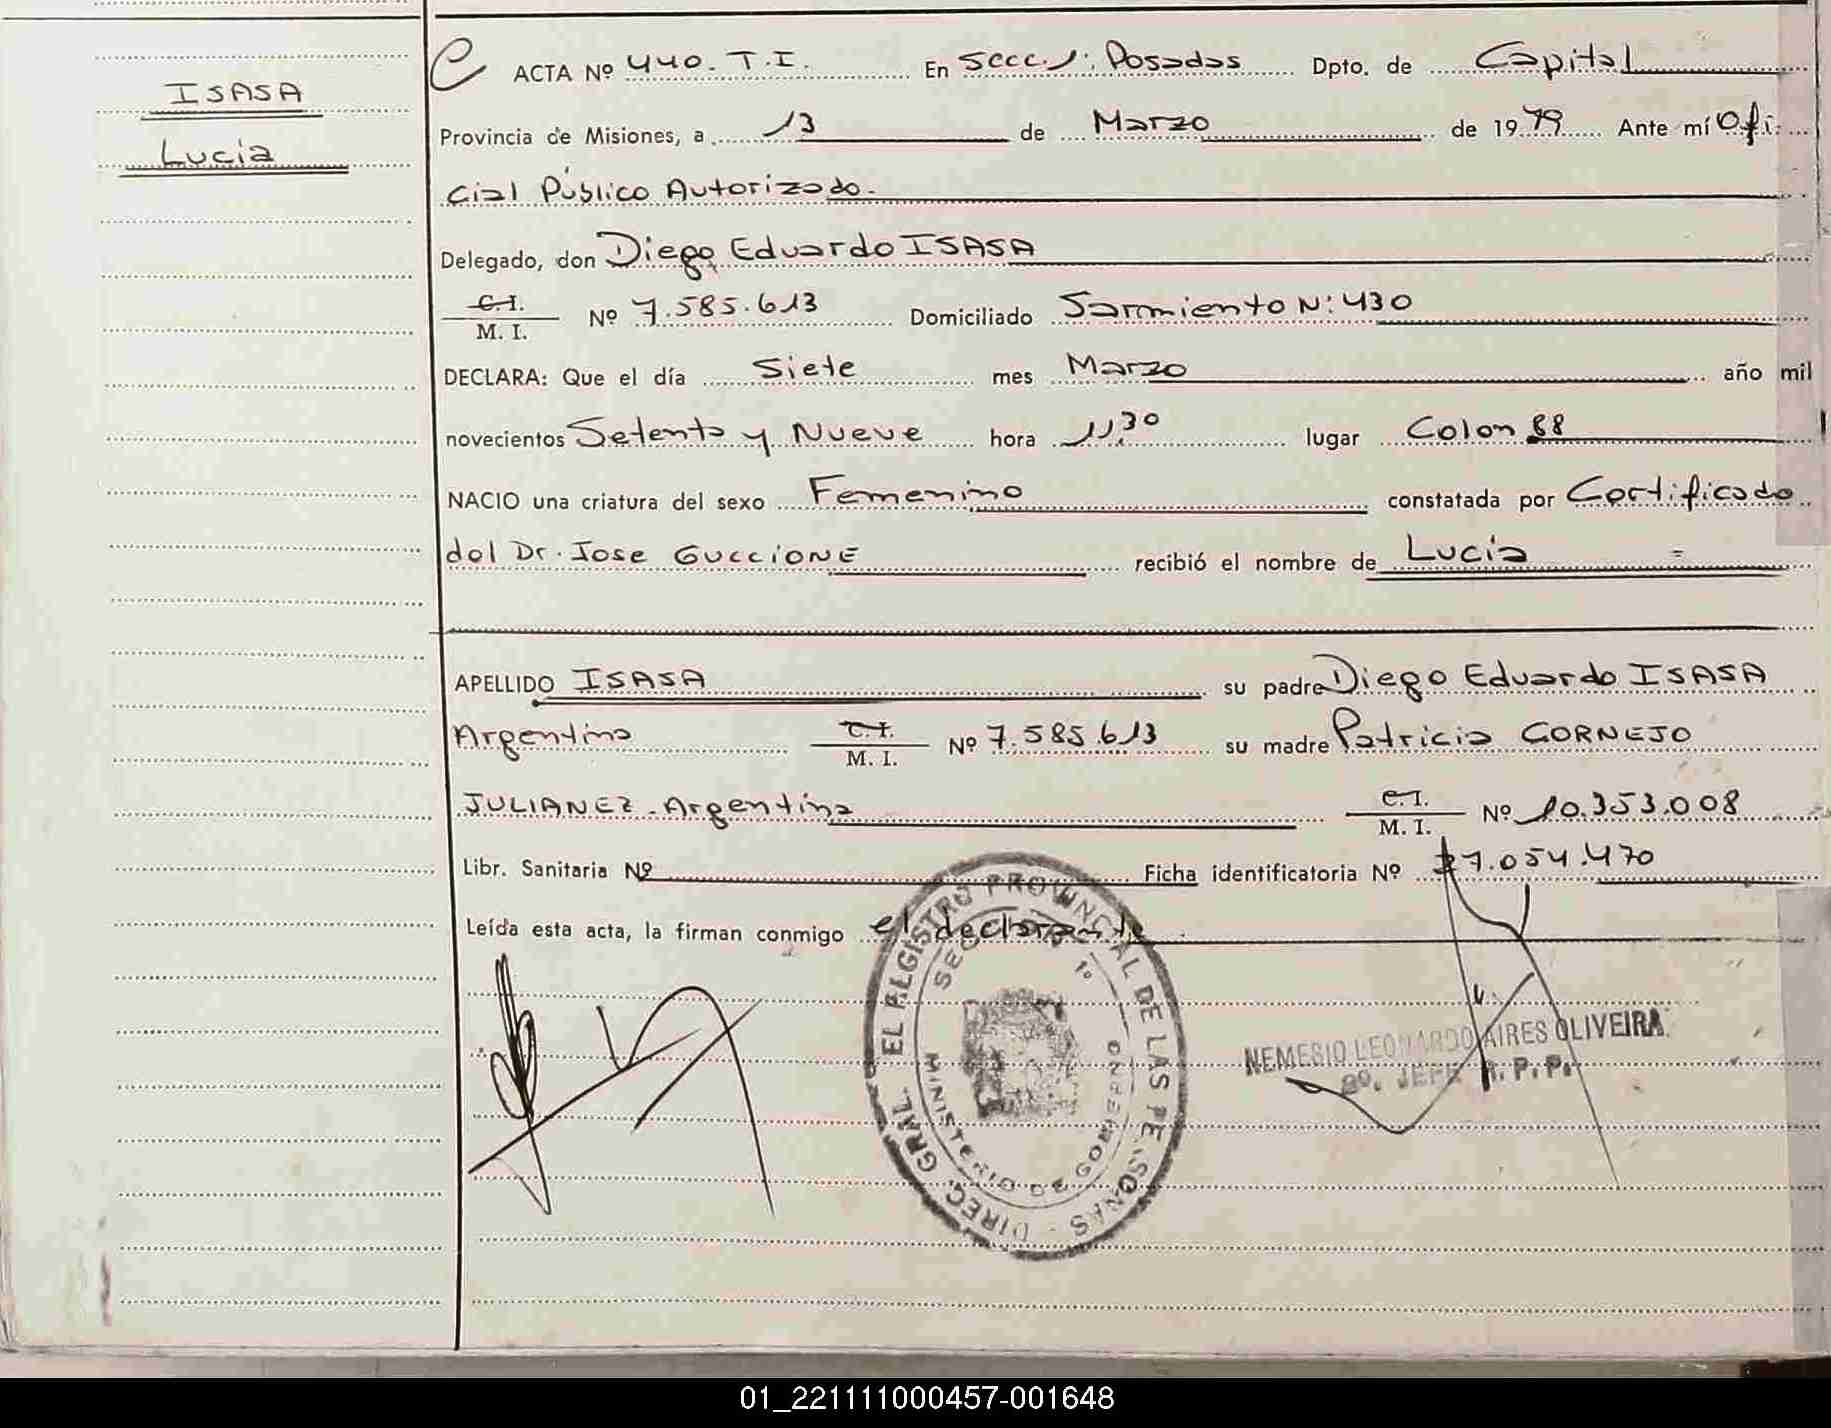 ISASA
Lucía
ACTA Nº 440. T.I. En Secc. 1: Posadas Dpto. de Capital
Provincia de Misiones, a 13 de Marzo de 1979 Ante mí Ofi
cial Público Autorizado.
Delegado, don Diego Eduardo ISASA
C.I.
M. I. Nº 7.585.613 Domiciliado Sarmiento N: 430
DECLARA: Que el día Siete mes Marzo año mil
novecientos Setenta y Nueve hora 11,30 lugar Colon 88
NACIO una criatura del sexo Femenino constatada por Certificado
del Dr. Jose GUCCIONE recibió el nombre de Lucía =
APELLIDO ISASA su padre Diego Eduardo ISASA
Argentino C.I.
M. I. Nº 7.585.613 su madre Patricia CORNEJO
JULIANEZ - Argentina C.I.
M. I. Nº 10.353.008
Libr. Sanitaria Nº Ficha identificatoria Nº 27.054.470
Leída esta acta, la firman conmigo el declarante.
DIREC. GRAL. EL REGISTRO PROVINCIAL DE LAS PERSONAS
SECC 1º
MINISTERIO DE GOBIERNO
NEMESIO LEONARDO AIRES OLIVEIRA
2º. JEFE R. P. P.
01_221111000457-001648